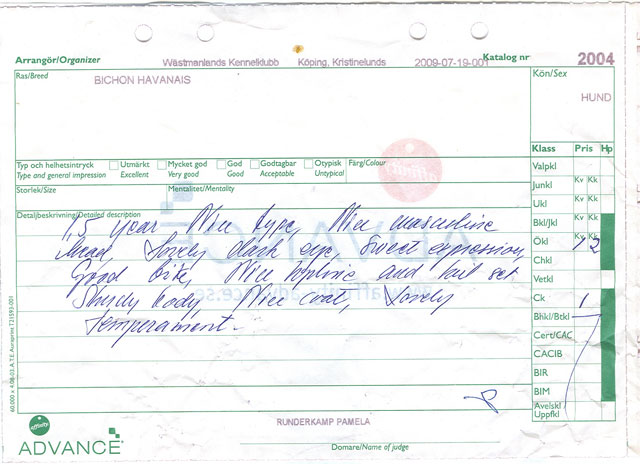 Arrangör/Organizer Västmanlands Kennelklubb Köping, Kristinelunds 2009-07-19-001 Katalog nr 2004
Ras/Breed BICHON HAVANAIS Kön/Sex HUND
Klass Pris Hp
Valpkl
Junkl Kv Kk
Ukl Kv Kk
Bkl/Jkl Kv Kk
Ökl Kv Kk 1 2
Chkl
Vetkl
Ck 1
Bhkl/Btkl
Cert/CAC
CACIB
BIR
BIM
Avelskl
Uppfkl
Typ och helhetsintryck Utmärkt Mycket god God Godtagbar Otypisk Färg/Colour
Type and general impression Excellent Very good Good Acceptable Untypical
Storlek/Size Mentalitet/Mentality
Detaljbeskrivning/Detailed description
1,5 year Nice type, Nice masculine
head, Lovely dark eye, Sweet expression,
Good bite, Nice topline and tail set
Sturdy body, Nice coat, Lovely
temperament.
RUNDERKAMP PAMELA
Domare/Name of judge
affinity
ADVANCE
affinity